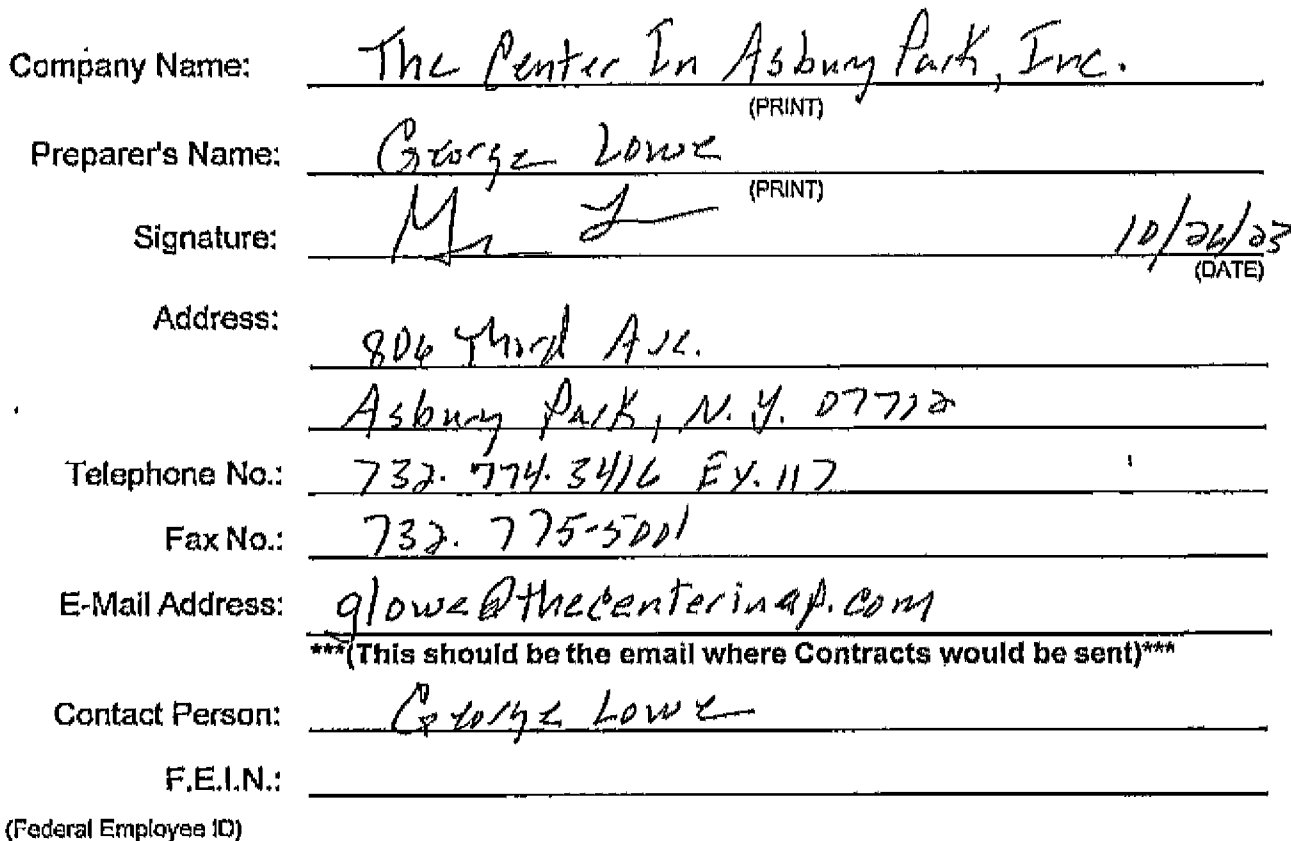 Company Name: The Center In Asbury Park, Inc.
(PRINT)
Preparer's Name: George Lowe
(PRINT)
Signature: 10/26/23
(DATE)
Address:
806 Third Ave.
Asbury Park, N.Y. 07712
Telephone No.: 732.774.3416 EX.117
Fax No.: 732.775-5001
E-Mail Address: glowe@thecenterinap.com
***(This should be the email where Contracts would be sent)***
Contact Person: George Lowe
F.E.I.N.:
(Federal Employee ID)